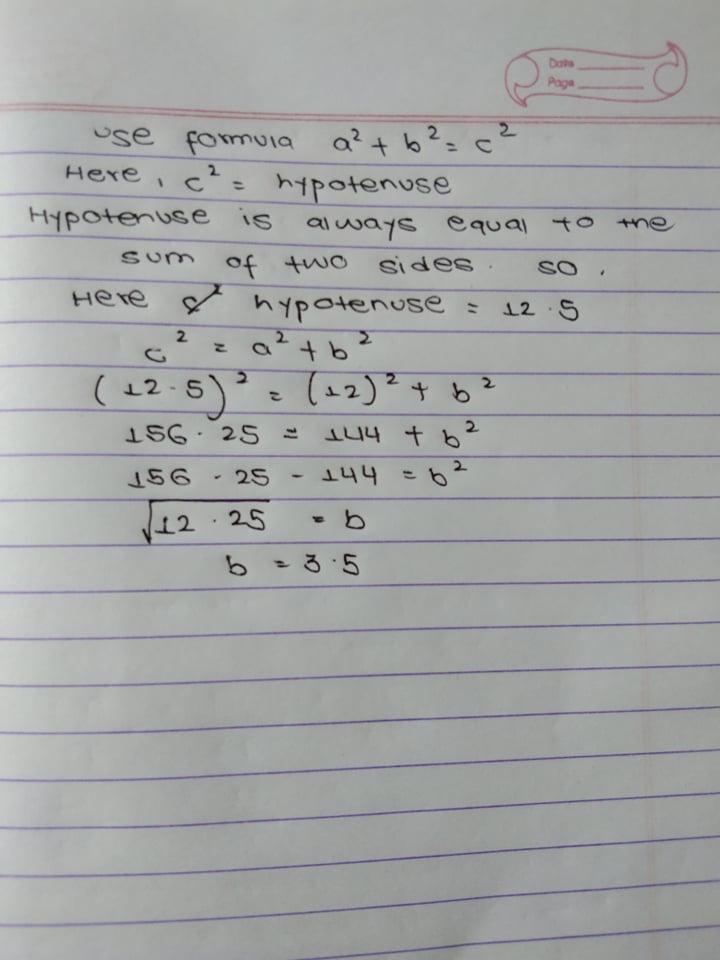 Date
Page
use formula a² + b² = c²
Here, c² = hypotenuse
Hypotenuse is always equal to the
sum of two sides. so,
Here hypotenuse = 12.5
c² = a² + b²
(12.5)² = (12)² + b²
156.25 = 144 + b²
156.25 - 144 = b²
√12.25 = b
b = 3.5